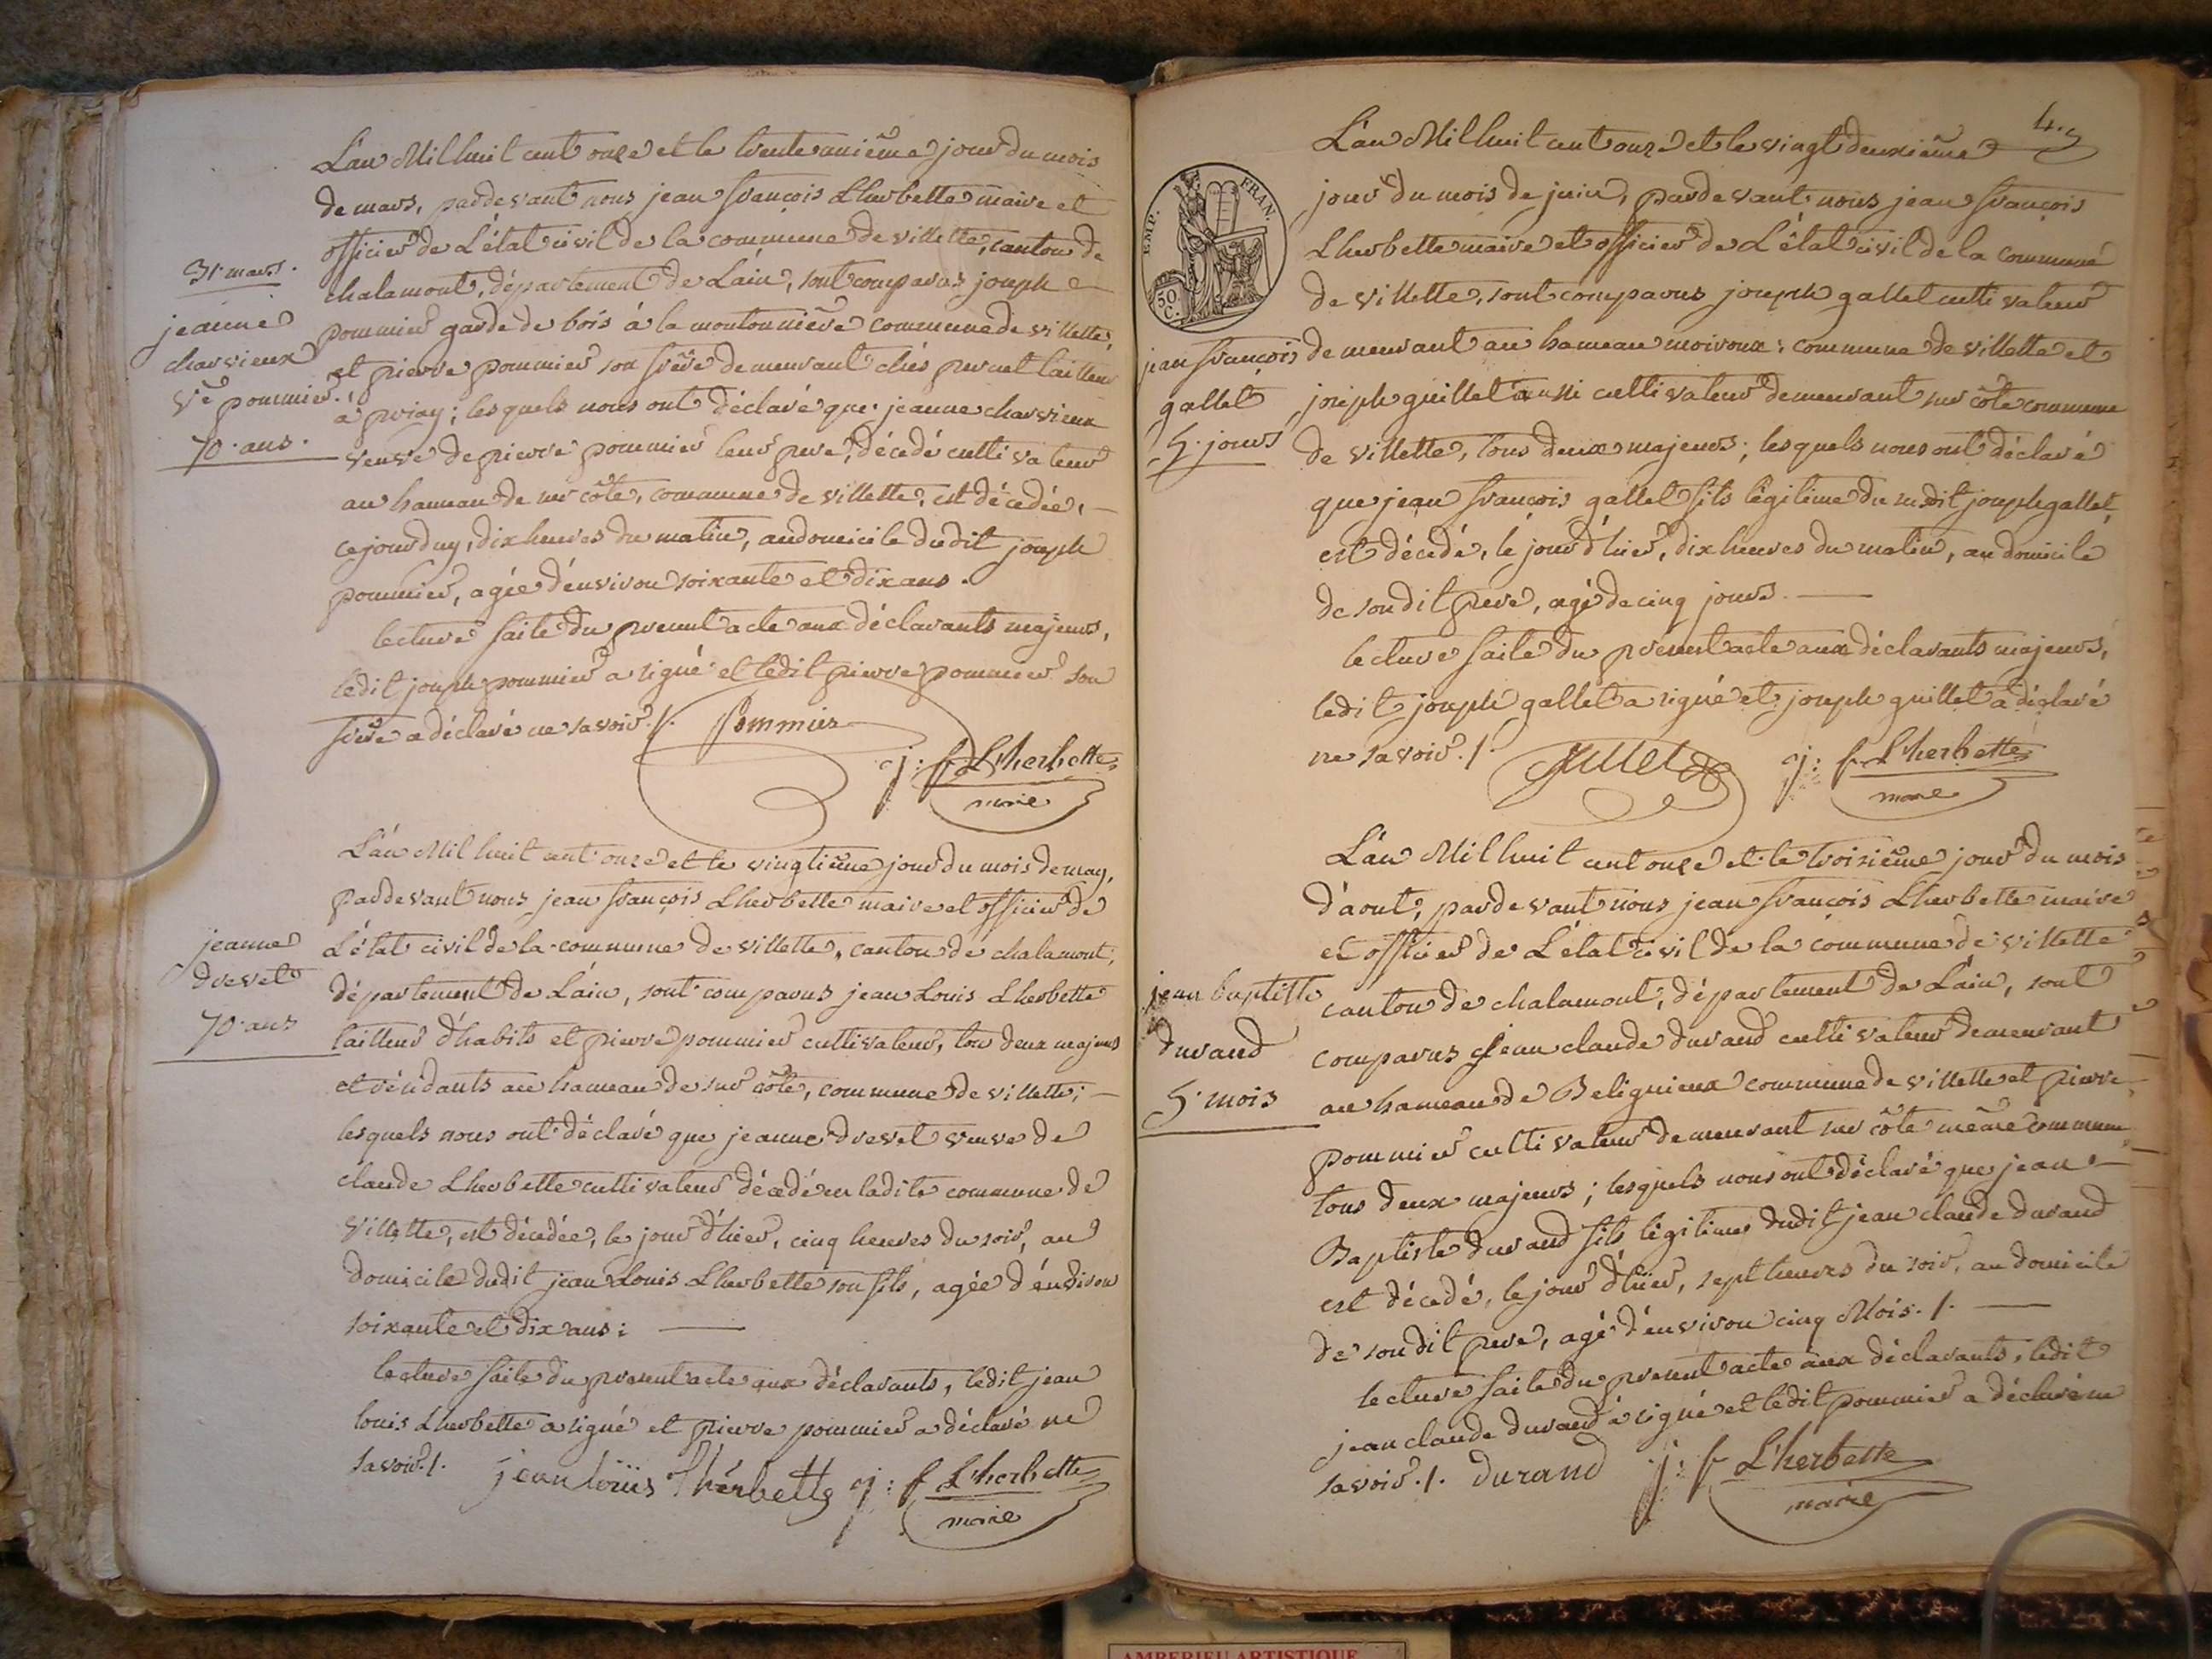 L'an Mil huit cent onze et le trente unième jour du mois
de mars, pardevant nous jean françois Lherbette maire et
officier de L'état civil de la commune de villette, canton de
chalamont, département de L'ain, sont comparus joseph
pommier garde de bois à la moutonnière commune de villette,
et pierre pommier son frère demeurant chés pernet tailleur
à priay; lesquels nous ont déclaré que jeanne charvieux
veuve de pierre pommier leur pere, décedé cultivateur
au hameau de sur côte, commune de villette, est décedée,
cejourduy, dix heures du matin, au domicile dudit joseph
pommier, agée d'environ soixante et dix ans.
lecture faite du present acte aux déclarants majeurs,
ledit joseph pommier a signé et ledit pierre pommier son
frère a déclaré ne savoir ./.
Pommier
j: f Lherbette
maire
31. mars.
jeanne
charvieux
Ve pommier.
70. ans.
L'an Mil huit cent onze et le vingtième jour du mois de may,
pardevant nous jean françois Lherbette maire et officier de
L'état civil de la commune de villette, canton de chalamont,
département de L'ain, sont comparus jean Louis Lherbette
tailleur d'habits et pierre pommier cultivateur, tou deux majeurs
et résidants au hameau de sur côte, commune de villette;
lesquels nous ont déclaré que jeanne drevet veuve de
claude Lherbette cultivateur décedé en ladite commune de
Villette, est décedée, le jour d'hier, cinq heures du soir, au
domicile dudit jean Louis Lherbette son fils, agée d'environ
soixante et dix ans:
lecture faite du present acte aux déclarants, ledit jean
louis Lherbette a signé et pierre pommier a déclaré ne
savoir ./.
jean loüis lhérbette
j: f Lherbette
maire
jeanne
drevet
70. ans
4.
L'an Mil huit cent onze et le vingt deuxième
jour du mois de juin, pardevant nous jean françois
Lherbette maire et officier de L'état civil de la commune
de villette, sont comparus joseph gallet cultivateur
demeurant au hameau moiroux, commune de villette et
joseph guillet aussi cultivateur demeurant sur côte commune
de villette, tous deux majeurs; lesquels nous ont déclaré
que jean françois gallet fils légitime du susdit joseph gallet,
est décedé, le jour d'hier, dix heures du matin, au domicile
de son dit pere, agé de cinq jours.
lecture faite du présent acte aux déclarants majeurs,
ledit joseph gallet a signé et joseph guillet a déclaré
ne savoir ./.
j: f Lherbette
maire
EMP. FRAN.
50
C.
jean françois
gallet
5. jours
L'an Mil huit cent onze et le troisième jour du mois
d'aout, pardevant nous jean françois Lherbette maire
et officier de L'état civil de la commune de villette
canton de chalamont, département de L'ain, sont
comparus jean claude durand cultivateur demeurant
au hameau de Belignieux commune de villette et pierre
pommier cultivateur demeurant sur côte même commune,
tous deux majeurs; lesquels nous ont déclaré que jean
Baptiste durand fils légitime dudit jean claude durand
est décedé, le jour d'hier, sept heures du soir, au domicile
de son dit pere, agé d'environ cinq Mois ./.
lecture faite du present acte aux déclarants, ledit
jean claude durand a signé et ledit pommier a déclaré ne
savoir ./.
durand
j: f Lherbette
maire
jean baptiste
durand
5. mois
AMBERIEU ARTISTIQUE